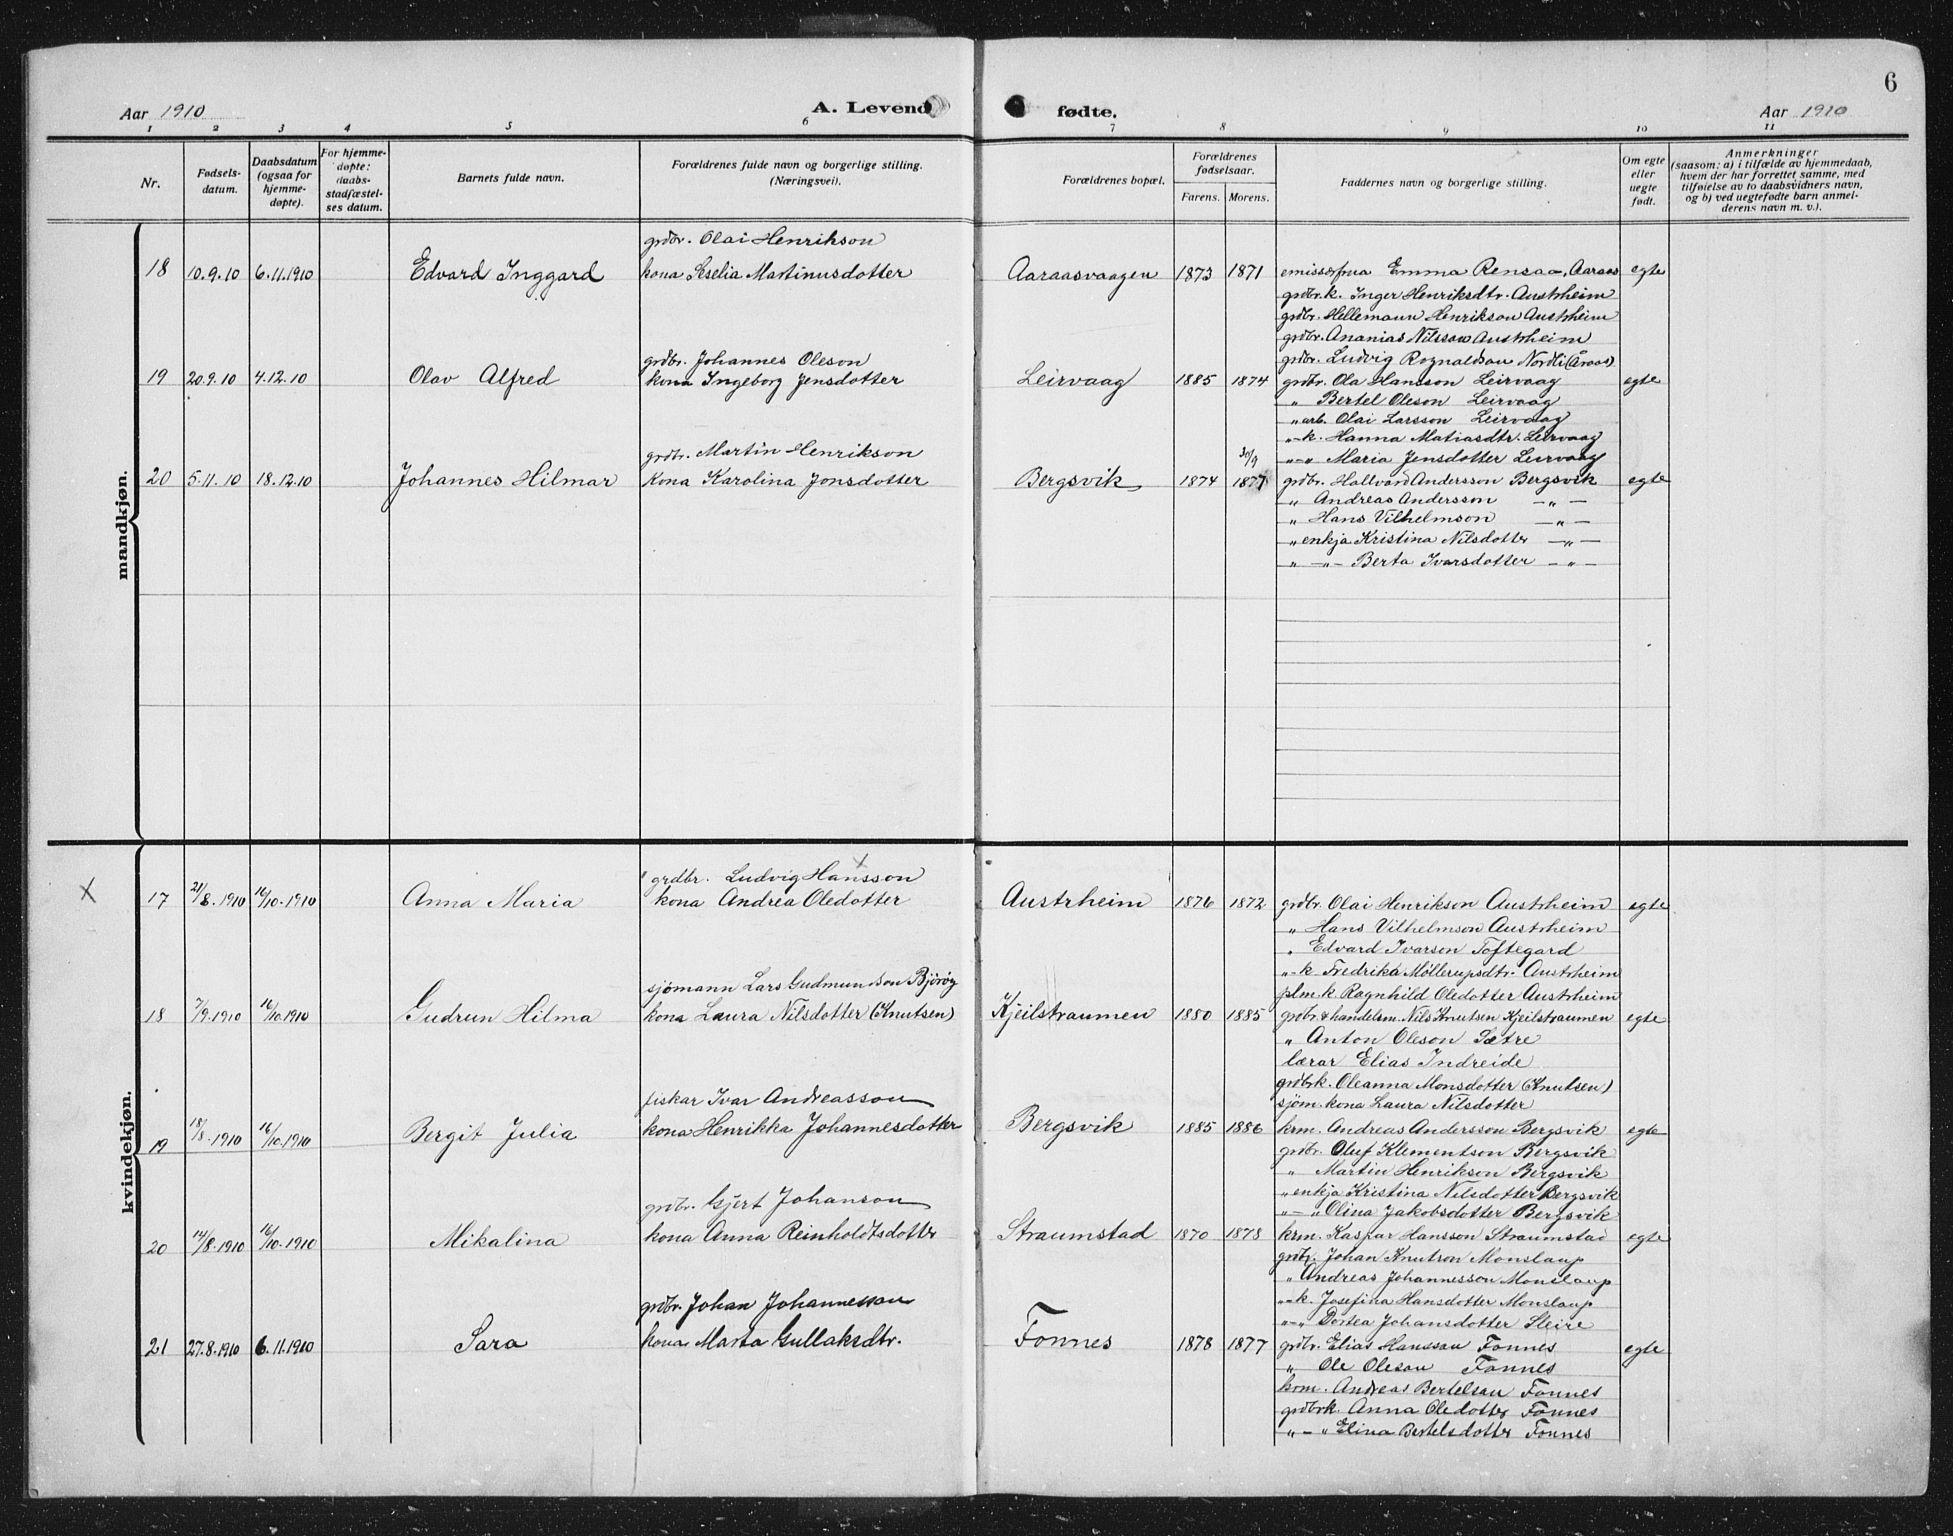 6
Aar 1910 A. Levende fødte. Aar 1910
1 2 3 4 5 6 7 8 9 10 11
Nr.
Fødsels-
datum.
Daabsdatum
(ogsaa for
hjemme-
døpte).
For hjemme-
døpte:
daabs-
stadfæstel-
ses datum.
Barnets fulde navn.
Forældrenes fulde navn og borgerlige stilling.
(Næringsvei).
Forældrenes bopæl.
Forældrenes
fødselsaar.
Farens. Morens.
Faddernes navn og borgerlige stilling.
Om egte
eller
uegte
født.
Anmerkninger
(saasom: a) i tilfælde av hjemmedaab,
hvem der har forrettet samme, med
tilføielse av to daabsvidners navn,
og b) ved uegtefødte barn anmel-
derens navn m. v.).
mandkjøn.
grdbr. Olai Henrikson
18 10.9.10 6.11.1910 Edvard Inggard kona Seselia Martinusdotter Aaraasvaagen 1873 1871 emissærfrua Emma Rensaa, Aaraas egte
grdbr.k. Inger Henriksdtr. Austrheim
grdbr. Hellemann Henrikson Austrheim
grdbr. Ananias Nilsson Austrheim
grdbr. Johannes Oleson grdbr. Ludvig Rognaldson Nordli (Åraas)
19 20.9.10 4.12.10 Olav Alfred kona Ingeborg Jensdotter Leirvaag 1885 1874 grdbr. Ola Hansson Leirvaag egte
" Bertel Oleson Leirvaag
" arb. Olai Larsson Leirvaag
"-k. Hanna Matiasdtr. Leirvaag
grdbr. Martin Henrikson 30/9 "-" Maria Jensdotter Leirvaag
20 5.11.10 18.12.10 Johannes Hilmar Kona Karolina Jonsdotter Bergsvik 1874 1877 grdbr. Hallvard Andersson Bergsvik egte
" Andreas Andersson — " —
" Hans Vilhelmson — " —
" enkja Kristina Nilsdotter — " —
" — " — Berta Ivarsdotter — " —
kvindekjøn.
grdbr. Ludvig Hansson
X 17 21/8.1910 16/10.1910 Anna Maria kona Andrea Oledotter Austrheim 1876 1872 grdbr. Olai Henrikson Austrheim egte
" Hans Vilhelmson Austrheim
" Edvard Ivarson Toftegard
"-k Fredrika Møllerupsdtr. Austrheim
sjømann Lars Gudmundson Bjørøy plm.k. Ragnhild Oledotter Austrheim
18 7/9.1910 16/10.1910 Gudrun Hilma kona Laura Nilsdotter (Knutsen) Kjeilstraumen 1880 1885 grdbr. & handelsm. Nils Knutsen Kjeilstraumen egte
" Anton Oleson Sætre
lærar Elias Indreide
grdbrk. Oleanna Monsdotter (Knutsen)
fiskar Ivar Andreasson sjøm. kona Laura Nilsdotter
19 18/8.1910 16/10.1910 Bergit Julia kona Henrikka Johannesdotter Bergsvik 1885 1886 krm. Andreas Andersson Bergsvik egte
grdbr. Oluf Klementson Bergsvik
" Martin Henrikson Bergsvik
" enkja Kristina Nilsdotter Bergsvik
grdbr. Gjert Johanson "-" Olina Jakobsdotter Bergsvik
20 14/8.1910 16/10.1910 Mikalina kona Anna Reinholdtsdotter Straumstad 1870 1878 krm. Kaspar Hansson Straumstad egte
grdbr. Johan Knutson Monslaup
" Andreas Johannesson Monslaup
"-k. Josefina Hansdotter Monslaup
grdbr. Johan Johannesson "-" Dortea Johansdotter Sleire
21 27.8.1910 6.11.1910 Sara kona Marta Gullaksdtr. Fonnes 1878 1877 grdbr. Elias Hansson Fonnes egte
" Ole Oleson Fonnes
krm. Andreas Bertelson Fonnes
grdbrk. Anna Oledotter Fonnes
" — " Elina Bertelsdotter Fonnes